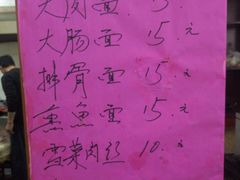 大肉面 15.元
大肠面 15.元
排骨面 15.元
熏鱼面 15.元
雪菜肉丝 10.元